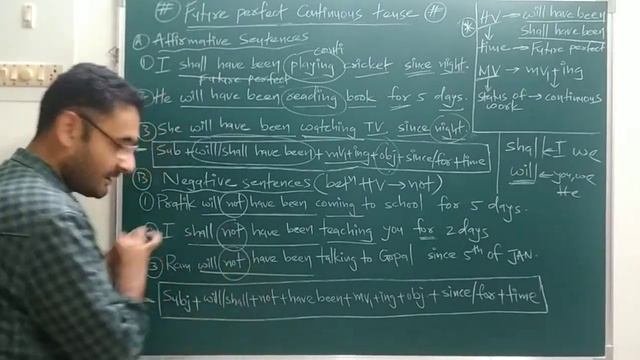 # Future perfect Continuous tense #
Ⓐ Affirmative Sentences
conti
① I shall have been playing cricket since night.
Future perfect
② He will have been reading book for 5 days.
③ She will have been watching TV since night.
Sub + will/shall have been + mv₁ + ing + obj + since/for + time
Ⓑ Negative sentences (betⁿ HV → not)
① Pratik will not have been coming to school for 5 days.
② I shall not have been teaching you for 2 days
③ Ram will not have been talking to Gopal since 5th of JAN.
Subj + will/shall + not + have been + mv₁ + ing + obj + since/for + time
* HV → will have been
shall have been
time → Future perfect
MV → mv₁ + ing
status of work → continuous
shall I we
will you, we
He